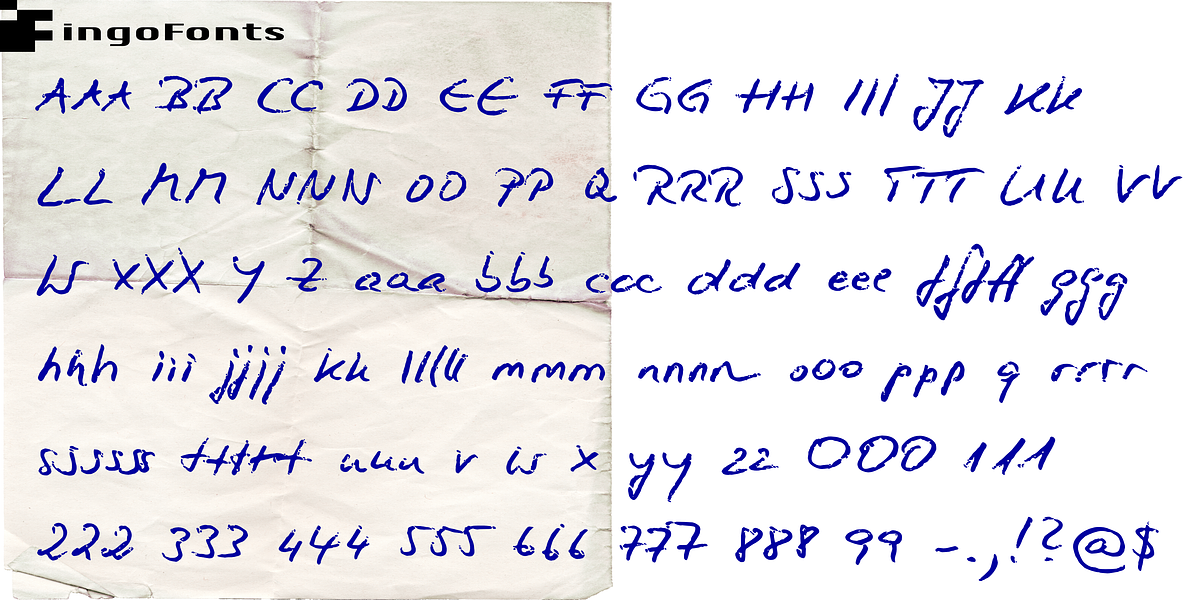 FingoFonts
AAA BB CC DD EE FF GG HH III JJ KK
LL MM NNN OO PP Q RRR SSS TTT UUU VV
W XXX Y Z aaa bbb ccc ddd eee fffff ggg
hhh iii jjjj kk lllll mmm nnnn ooo ppp q rrrr
ssssss ttttt uuu v w x yy zz 000 111
222 333 444 555 666 777 888 99 -.,!?@$